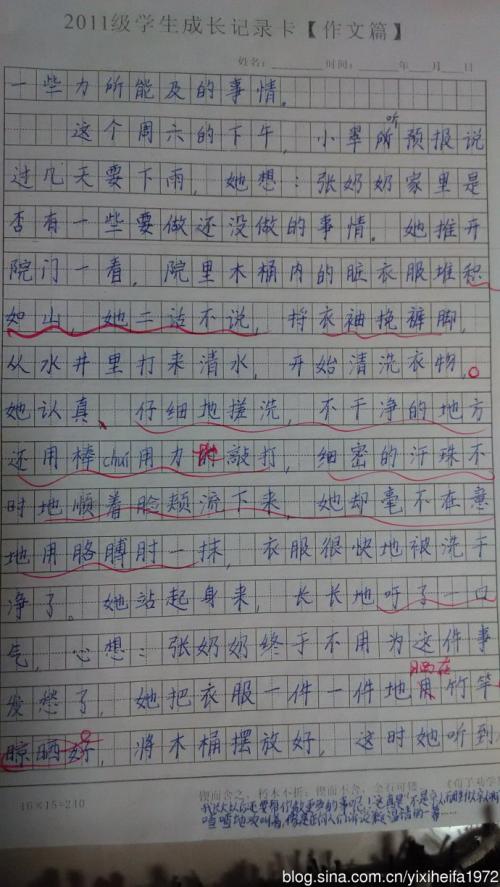 2011级学生成长记录卡【作文篇】
姓名: 时间: 年 月 日
一些力所能及的事情。
听
这个周六的下午，小翠所预报说
过几天要下雨，她想：张奶奶家里是
否有一些要做还没做的事情。她推开
院门一看，院里木桶内的脏衣服堆积
如山，她二话不说，捋衣袖挽裤脚，
从水井里打来清水，开始清洗衣物。
她认真、仔细地搓洗，不干净的地方
还用棒chui用力的敲打，细密的汗珠不
时地顺着脸颊流下来，她却毫不在意
地用胳膊肘一抹，衣服很快地被洗干
净了。她站起身来，长长地吁了一口
气，心想：张奶奶终于不用为这件事
发愁了，她把衣服一件一件地用竹竿
晒在
晾晒好，将木桶摆放好，这时她听到
锲而舍之，朽木不折；锲而不舍，金石可镂
16×15=240
blog.sina.com.cn/yixiheifa1972